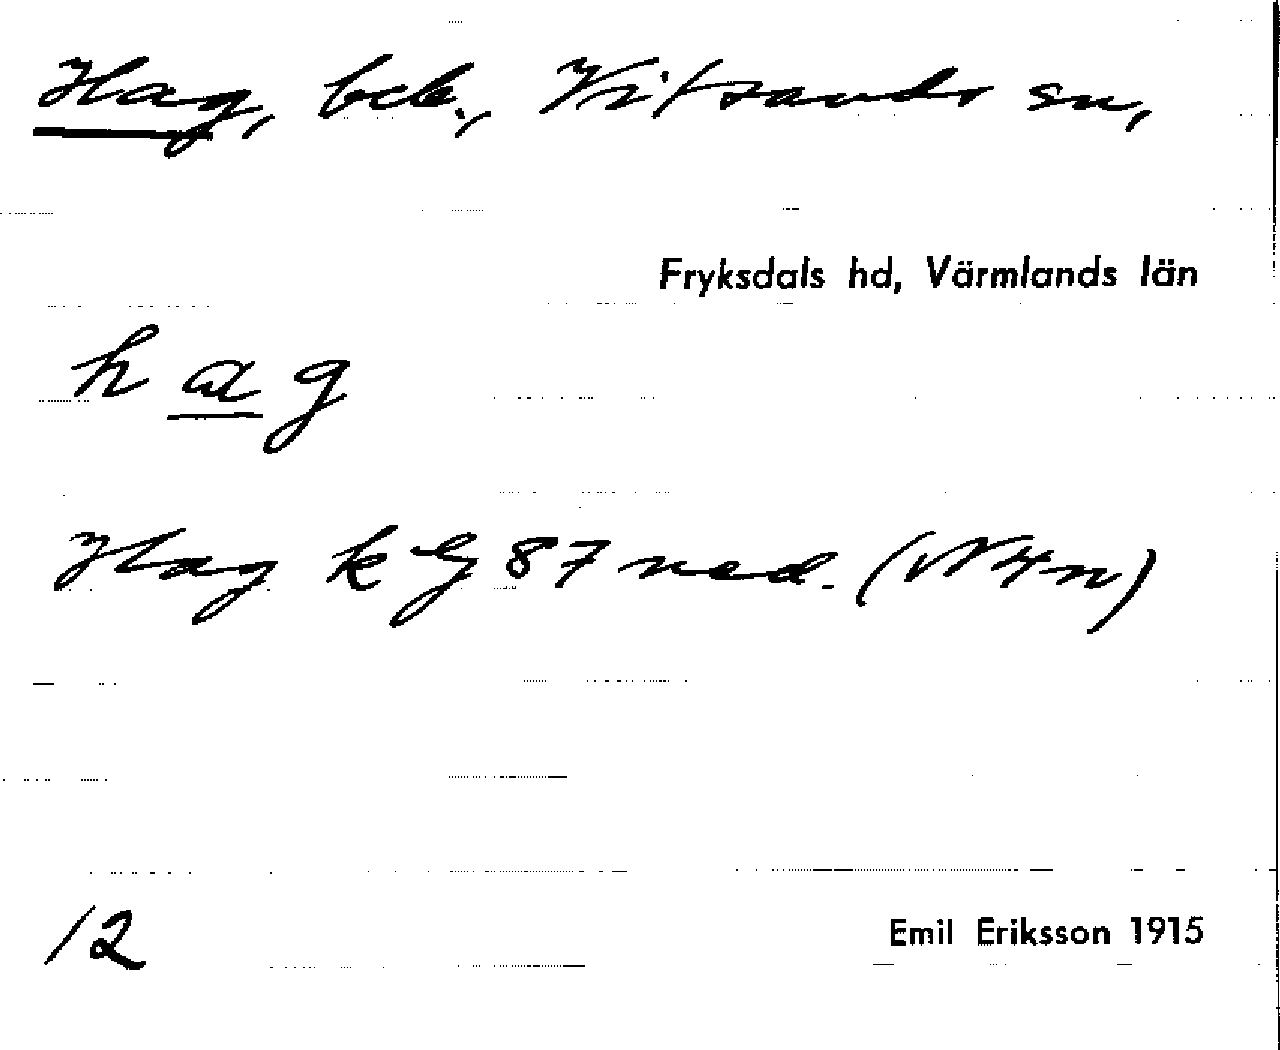 Hag, beb., Vitsands sn,
Fryksdals hd, Värmlands län
hag
Hag k Gj 87 ned.
12
Emil Eriksson 1915